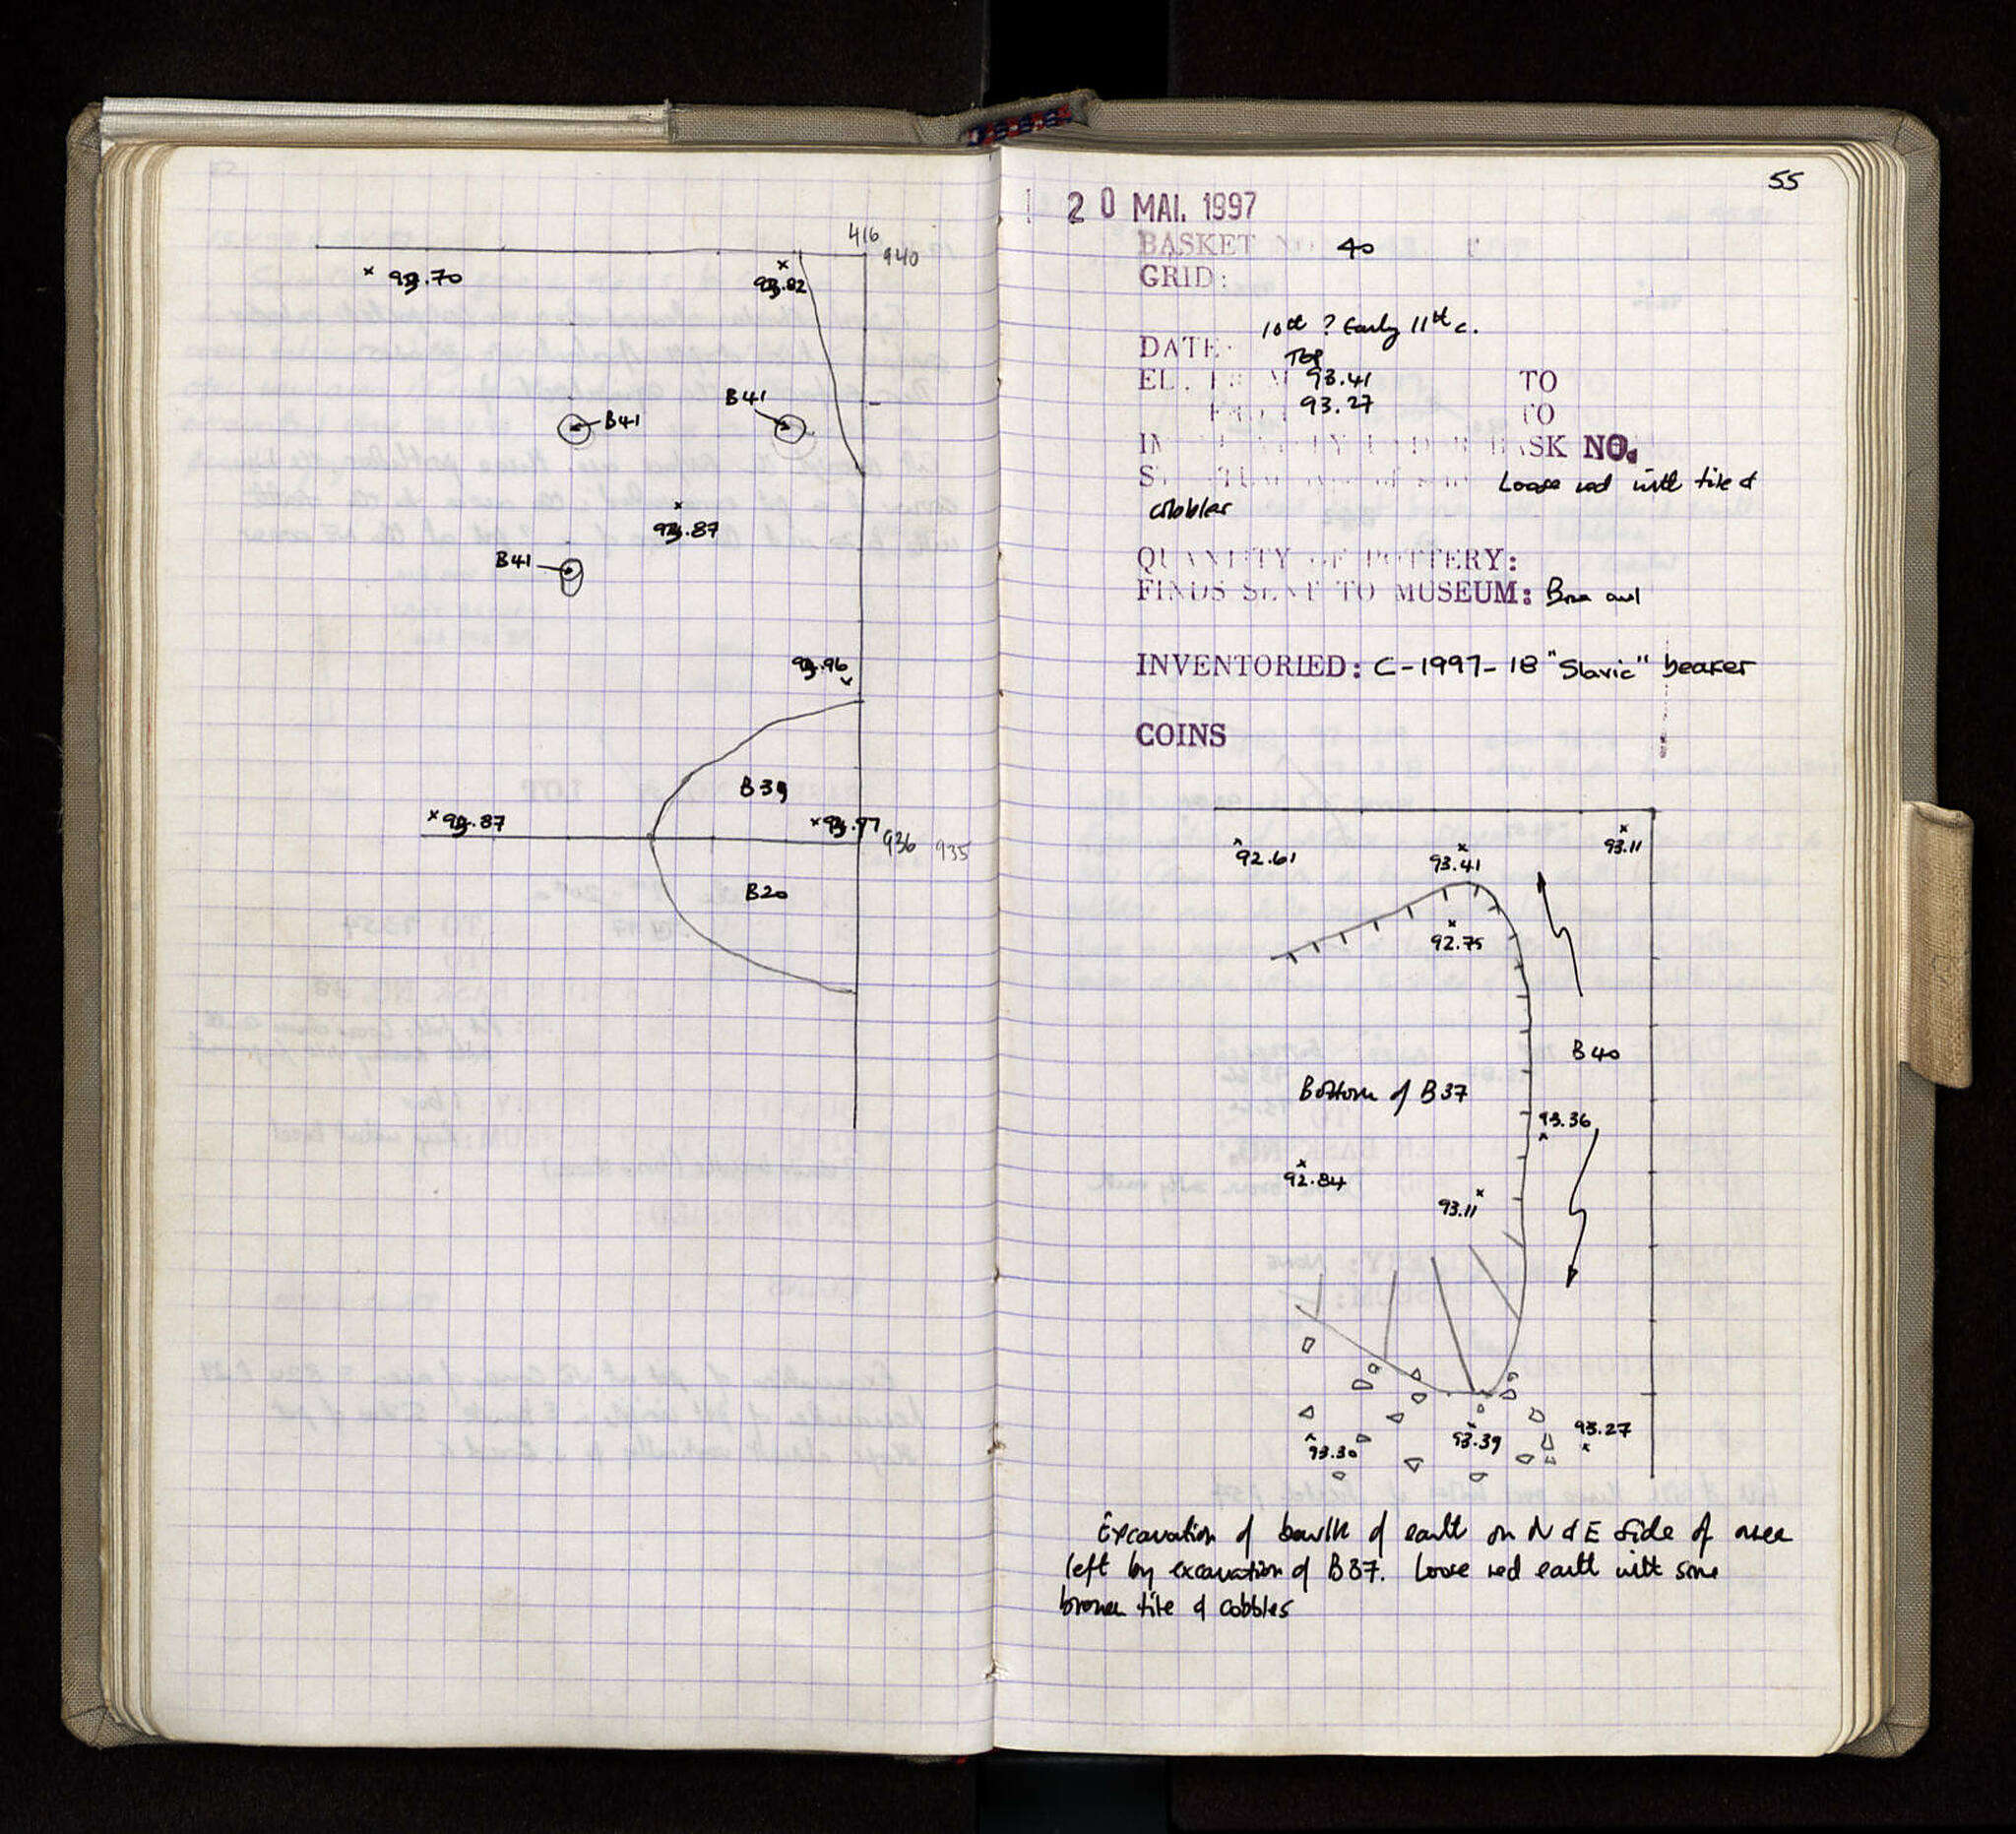 416
940
× 93.70
× 93.82
B41
B41
× 93.87
B41
93.96
B39
× 93.87
× 93.97
936 935
B20
55
20 MAI. 1997
BASKET NO 40
GRID:
10th ? Early 11th c.
DATE:
TOP
EL. FROM 93.41 TO
93.27 TO
BASK NO.
Loose red with tile &
cobbles
QUANTITY OF POTTERY:
FINDS SENT TO MUSEUM: Bone awl
INVENTORIED: C-1997-18 "Slavic" beaker
COINS
92.61
93.41
93.11
92.75
B40
Bottom of B37
93.36
92.84
93.11
93.30
93.39
93.27
Excavation of baulk of earth on N & E side of area
left by excavation of B37. Loose red earth with some
broken tile & cobbles